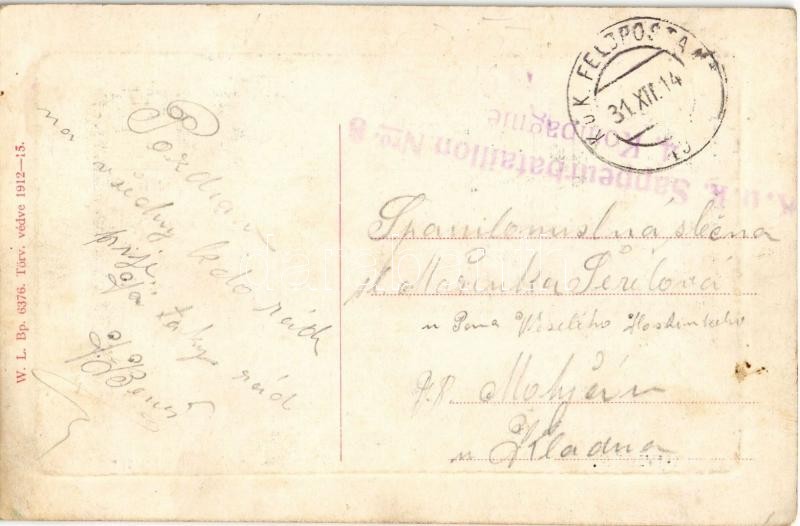 W. L. Bp. 6376. Törv. védve 1912—15.
Pozdrav
na všechny kdo rád
pije.
Já taky rád
K.U.K. FELDPOSTAMT
31.XII.14
K. u. k. Sappeurbataillon Nro. 8
4. Kompagnie
Spanilomislná slečna
sl. Mařenka Peřilová
u Pana Veselého
Molyáň
u Kladna